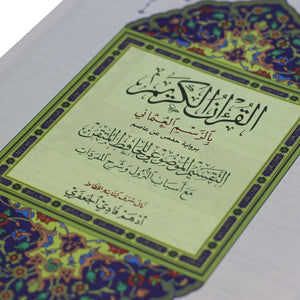 القرآن الكريم
بالرسم العثماني
برواية حفص عن عاصم
التقسيم الموضوعي للحافظ المتقن
مع أسباب النزول وشرح المفردات
أدهم فادي الجعفري